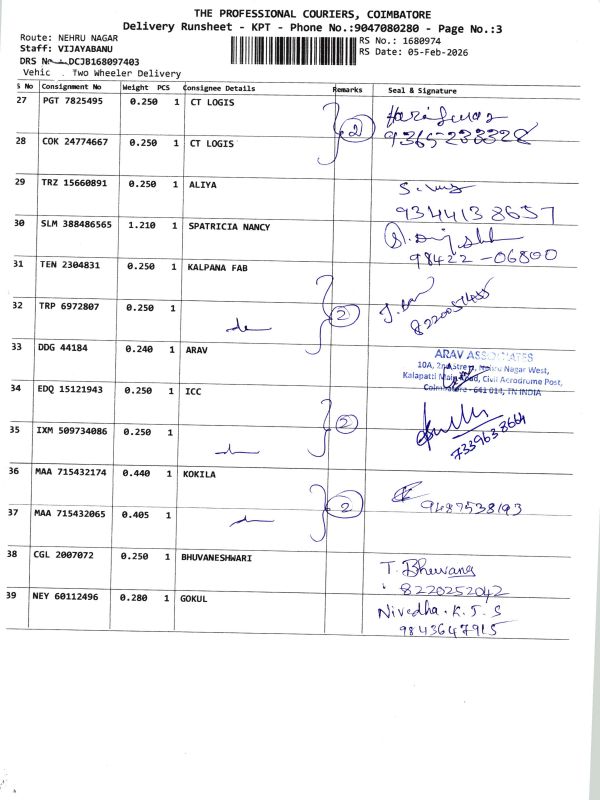 THE PROFESSIONAL COURIERS, COIMBATORE
Delivery Runsheet - KPT - Phone No.:9047080280 - Page No.:3
Route: NEHRU NAGAR
RS No.: 1680974
Staff: VIJAYABANU
RS Date: 05-Feb-2026
DRS No DCJB168097403
Vehic . Two Wheeler Delivery
S No Consignment No Weight PCS Consignee Details Remarks Seal & Signature
27 PGT 7825495 0.250 1 CT LOGIS
2
9365233322
28 COK 24774667 0.250 1 CT LOGIS
29 TRZ 15660891 0.250 1 ALIYA
9344138657
30 SLM 388486565 1.210 1 SPATRICIA NANCY
98422-06800
31 TEN 2304831 0.250 1 KALPANA FAB
2
32 TRP 6972807 0.250 1
do
33 DDG 44184 0.240 1 ARAV
ARAV ASSOCIATES
10A, 2nd Street, Nehru Nagar West,
Kalapatti Main Road, Civil Aerodrume Post,
Coimbatore - 641 014, TN INDIA
34 EDQ 15121943 0.250 1 ICC
2
7339638664
35 IXM 509734086 0.250 1
do
36 MAA 715432174 0.440 1 KOKILA
2
9487538193
37 MAA 715432065 0.405 1
do
38 CGL 2007072 0.250 1 BHUVANESHWARI
T. Bhuvana
8220252042
39 NEY 60112496 0.280 1 GOKUL
Nivedha.K.J.S
9843647915